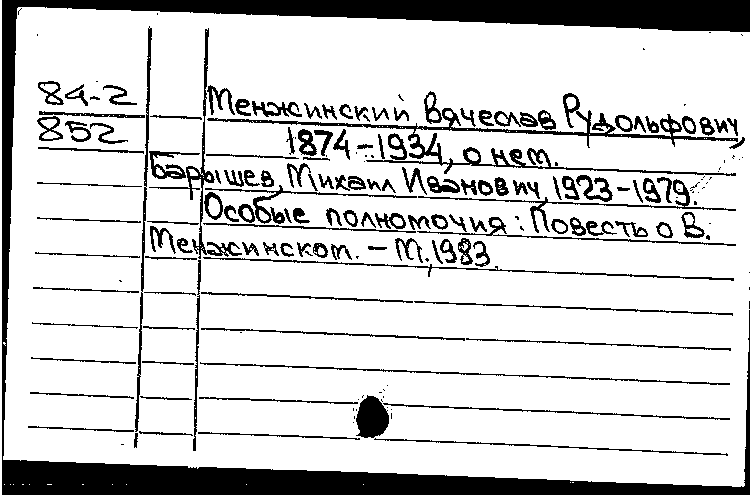 84-2 Менжинский, Вячеслав Рудольфович,
852 1874-1934, о нем.
Барышев, Михаил Иванович, 1923-1979.
Особые полномочия: Повесть о В.
Менжинском. - М., 1983.